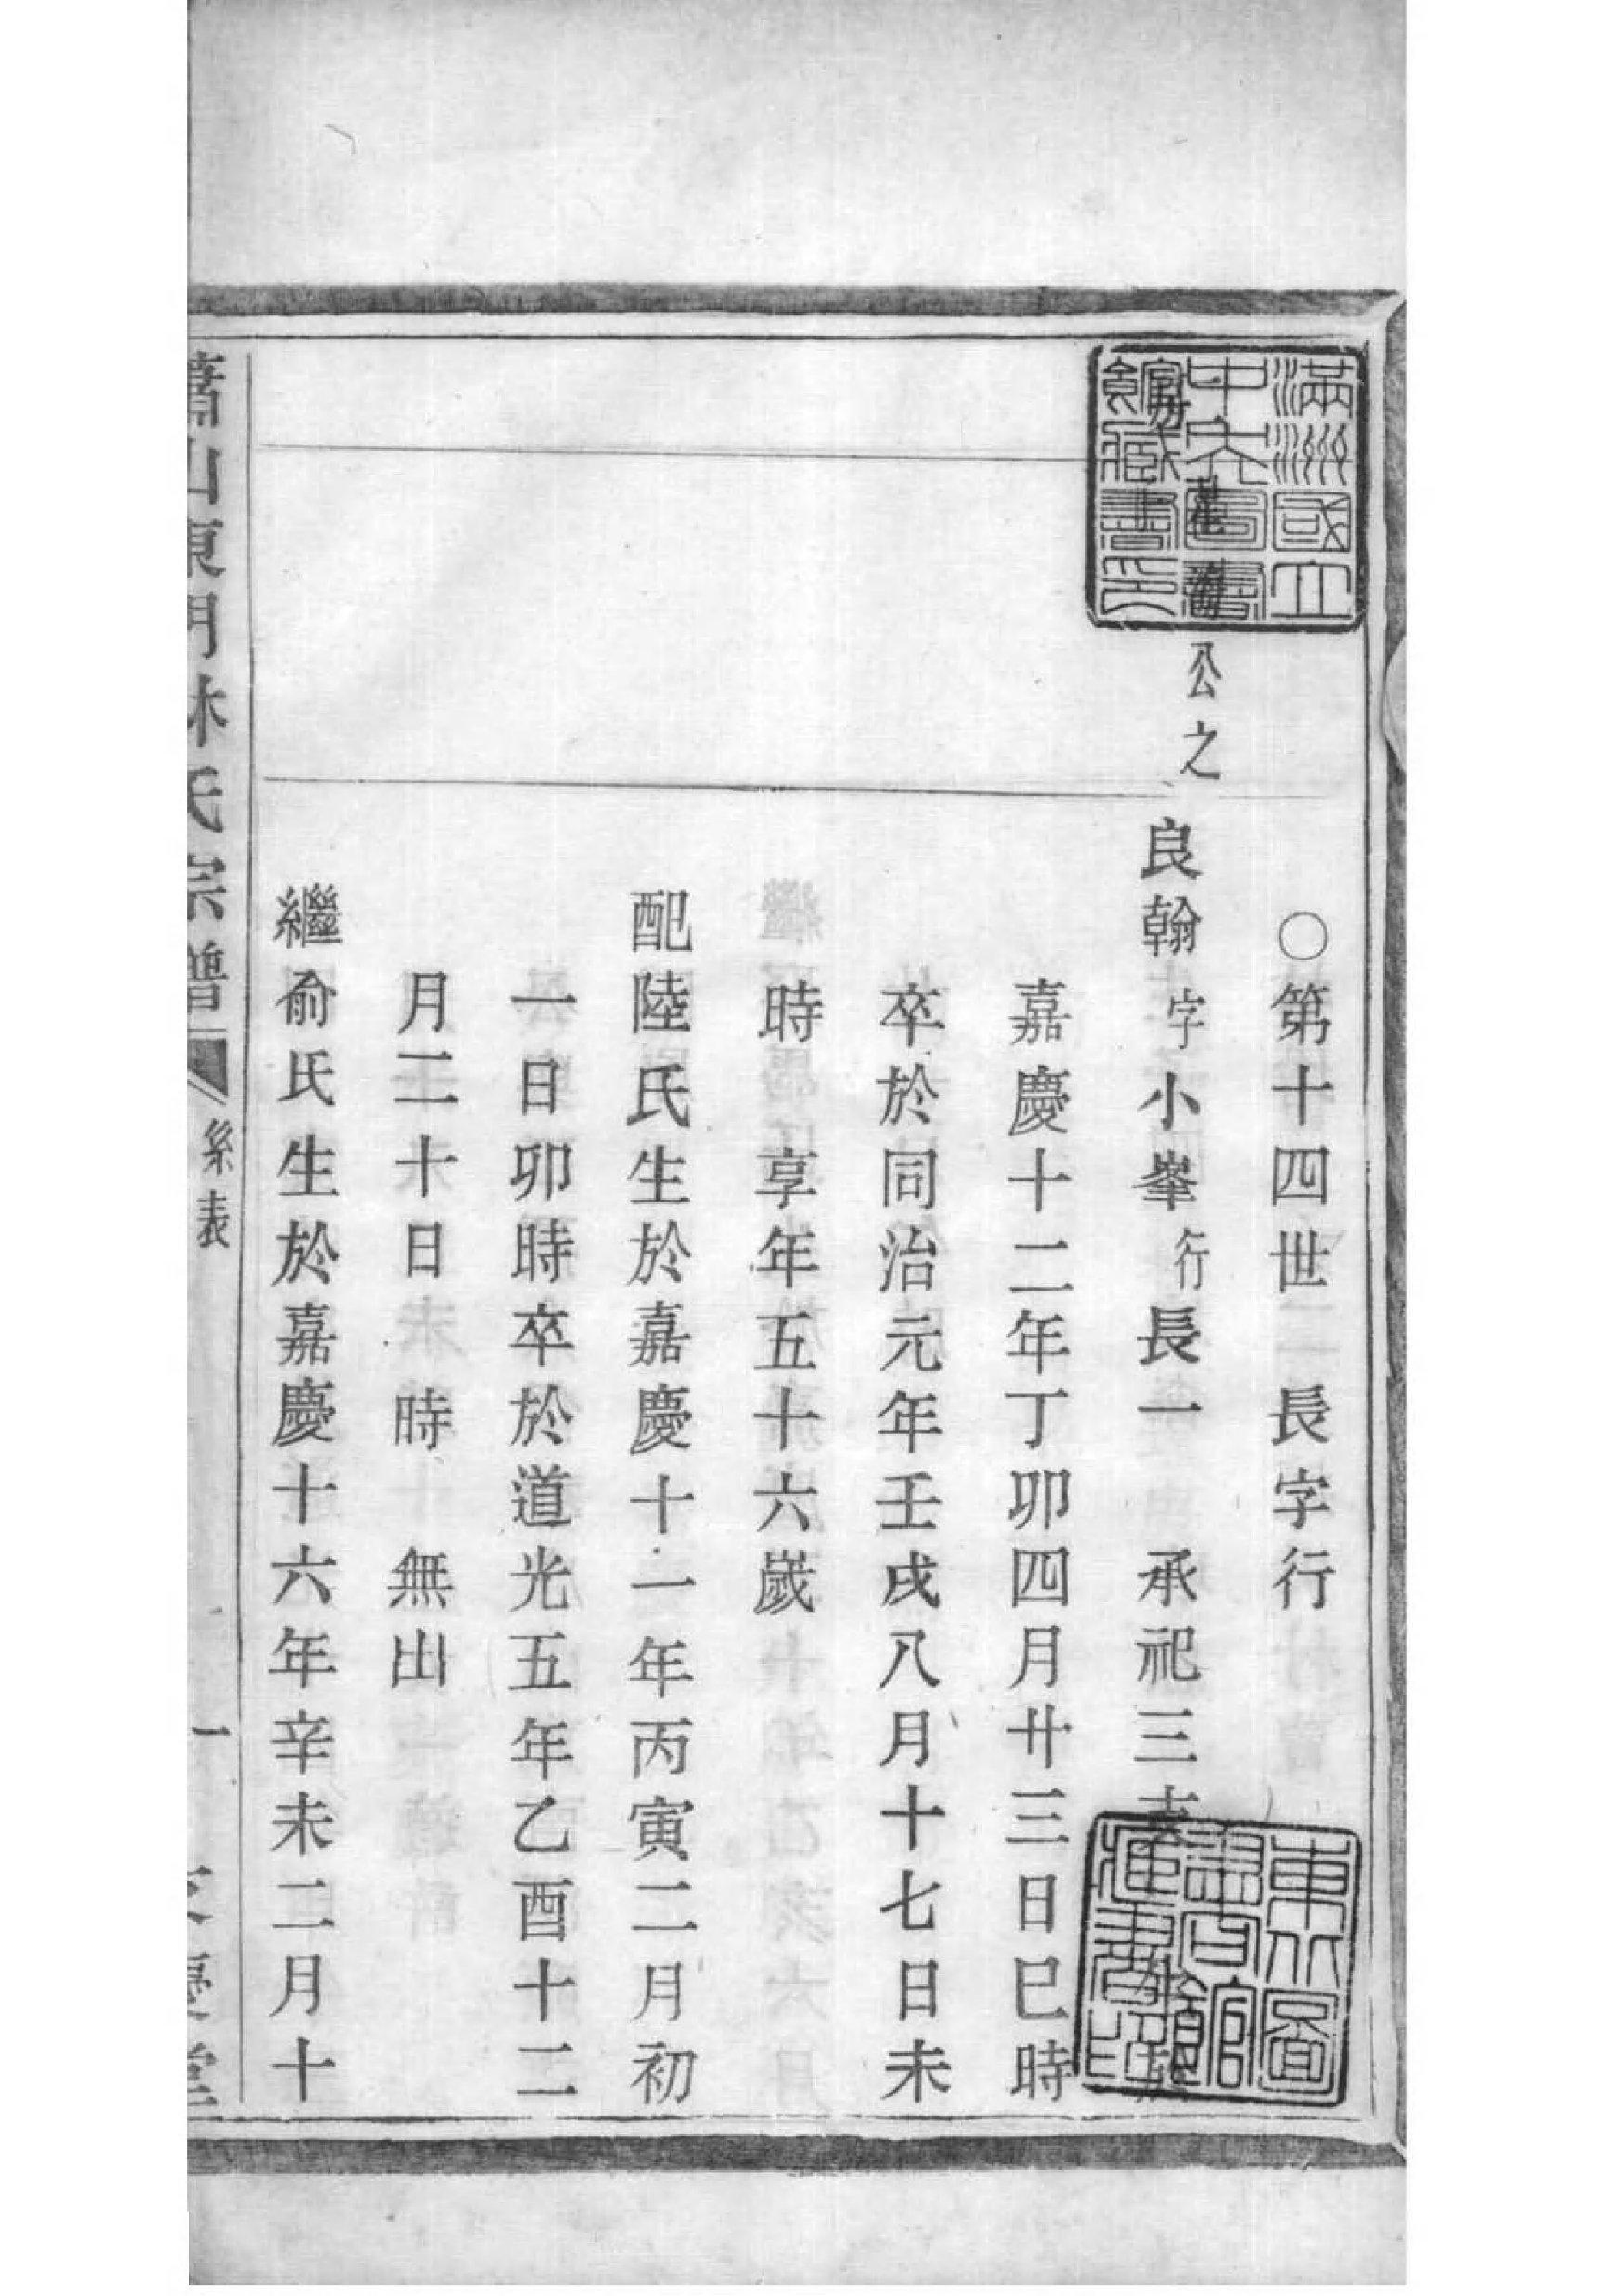 滿洲國立
中央圖書
館藏書印
公之
○第十四世　長字行
良翰　字小峯　行長一　承祀三
嘉慶十二年丁卯四月廿三日巳時
卒於同治元年壬戌八月十七日未
時　享年五十六歲
配陸氏生於嘉慶十一年丙寅二月初
一日卯時卒於道光五年乙酉十二
月二十日　時　無出
繼俞氏生於嘉慶十六年辛未二月十
東北圖
書館
藏書印
蕭山東門林氏宗譜　系表　一